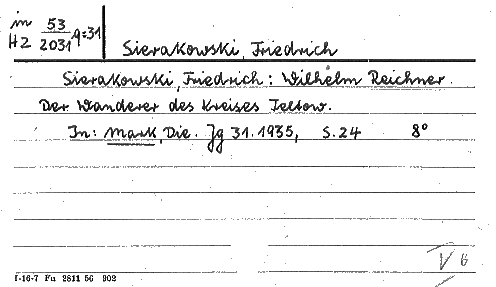 in 53 q:31
HZ 2031
Sierakowski, Friedrich
Sierakowski, Friedrich: Wilhelm Reichner.
Der Wanderer des Kreises Teltow.
In: Mark, Die. Jg 31. 1935, S. 24 8°
V 6
I-16-7 Fu 2811 56 902